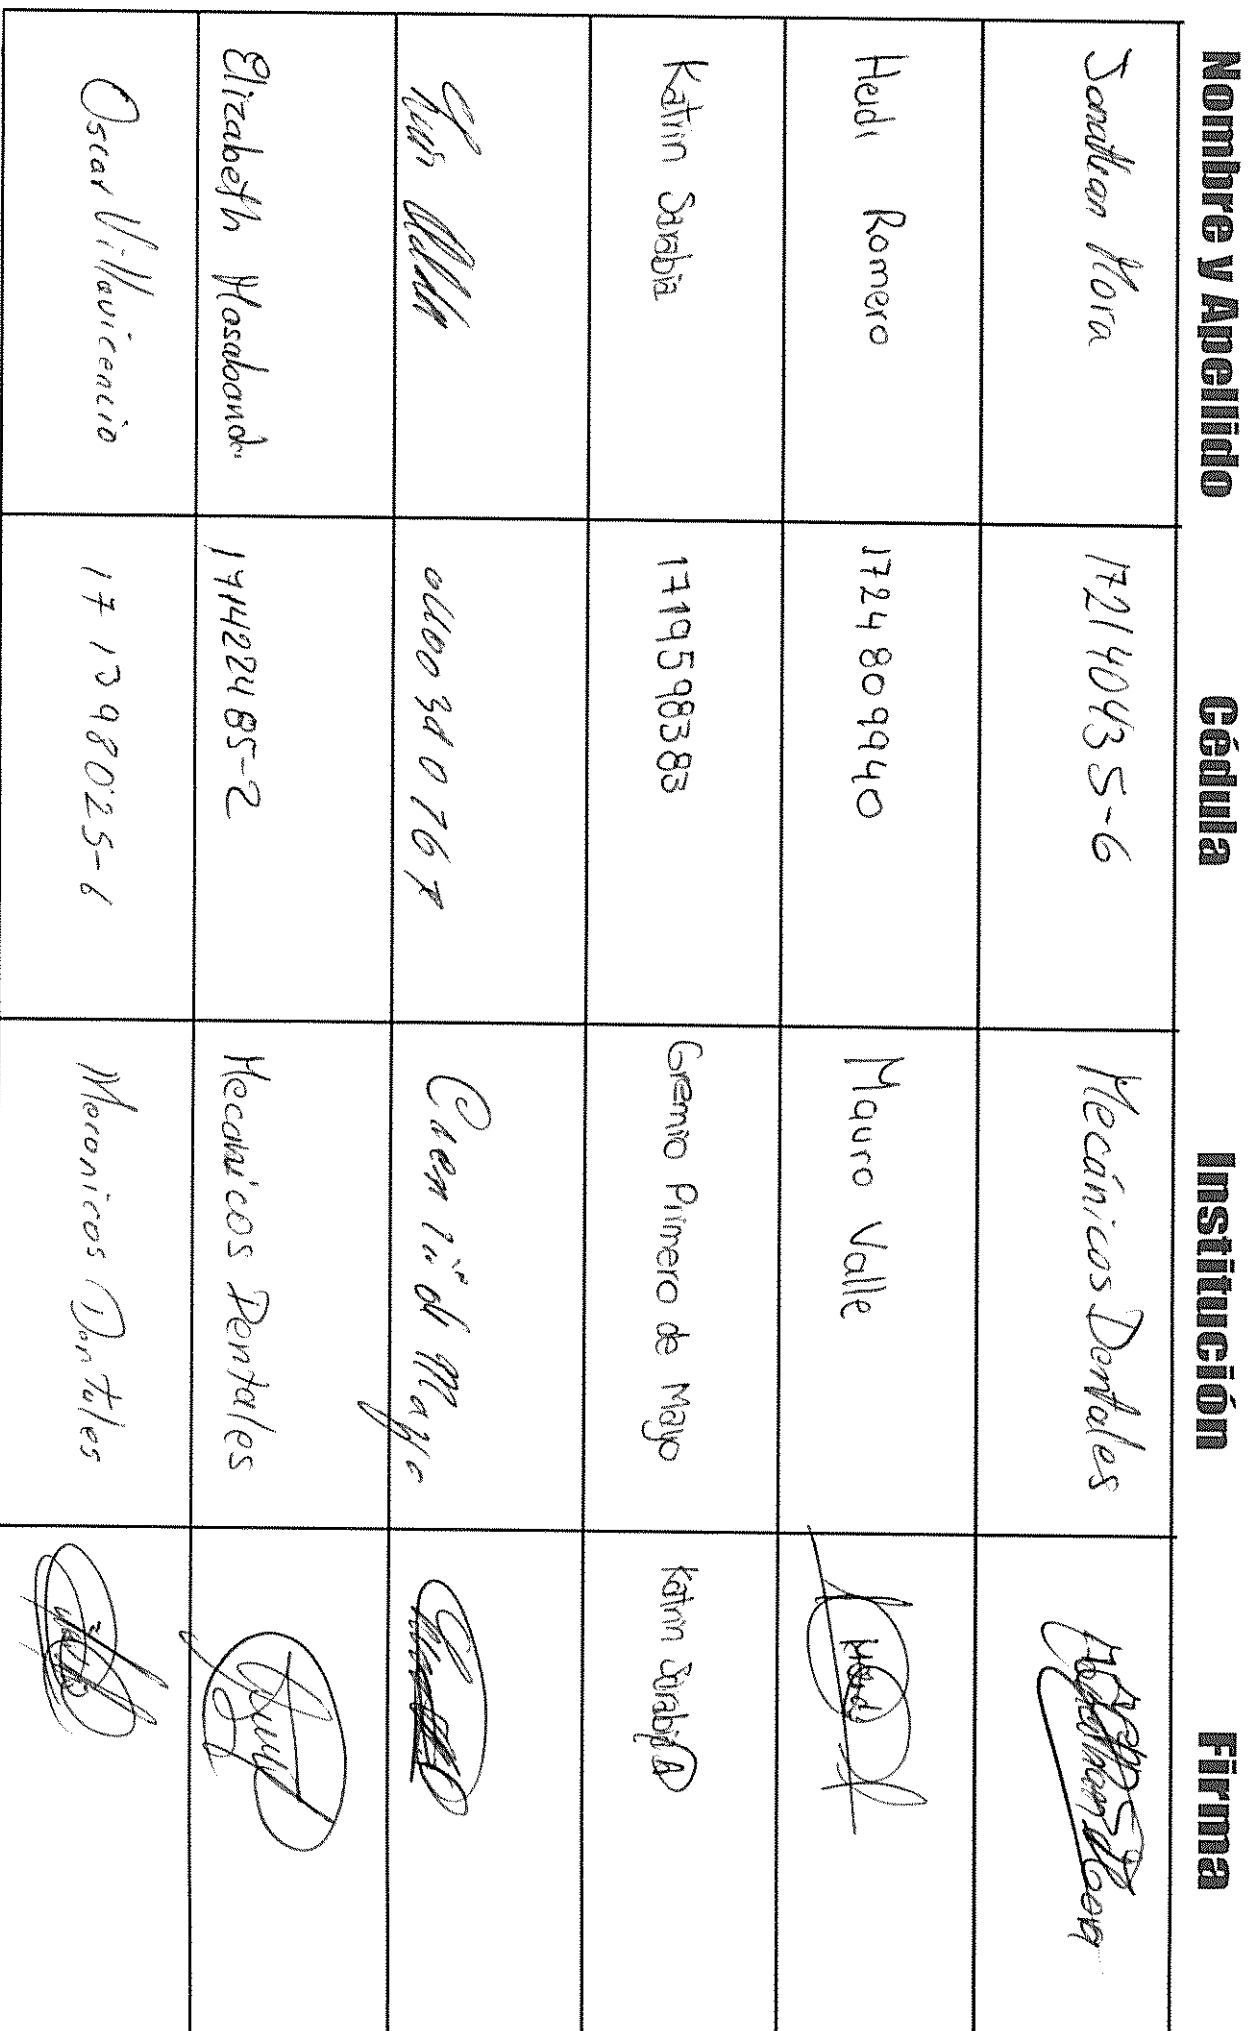 Nombre y Apellido Cédula Institución Firma
Jonathan Mora 172140435-6 Mecánicos Dentales
Heidi Romero 1724809940 Mauro Valle Heidi
Katrin Sarabia 1719598383 Gremio Primero de Mayo Katrin Sarabia
Mayo
Elizabeth Masabanda 171422485-2 Mecanicos Dentales
Oscar Villavicencio 171398025-6 Mecanicos Dentales